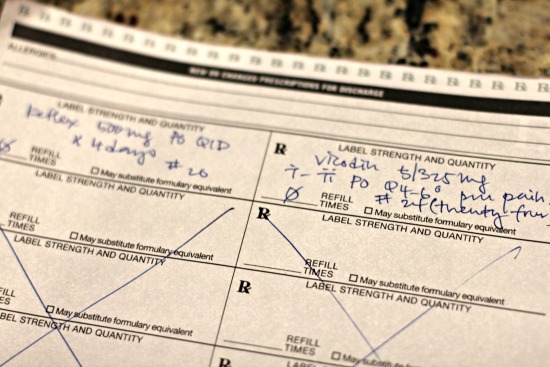 ALLERGIES:
NEW OR CHANGED PRESCRIPTIONS FOR DISCHARGE
LABEL STRENGTH AND QUANTITY
Keflex 500mg PO QID
x 4 days # 20
Ø REFILL TIMES
May substitute formulary equivalent
℞ LABEL STRENGTH AND QUANTITY
Vicodin 5/325 mg
T - TT PO Q4-6° prn pain
Ø # 24 (twenty-four
REFILL TIMES
May substitute formulary equivalent
LABEL STRENGTH AND QUANTITY
REFILL TIMES
May substitute formulary equivalent
℞ LABEL STRENGTH AND QUANTITY
REFILL TIMES
May substitute formulary equivalent
LABEL STRENGTH AND QUANTITY
FILL MES
May substitute formulary equivalent
℞ LABEL STRENGTH AND QUANTITY
REFILL TIMES
May substitute formulary equivalent
LABEL STRENGTH AND QUANTITY
℞ LABEL STRENGTH AND QUANTITY